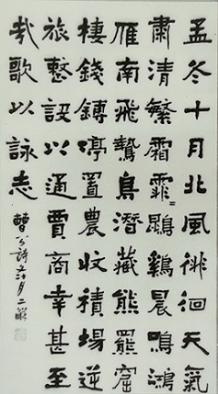 孟冬十月北風徘徊天氣
肅清繁霜霏〻鵾鷄晨鳴鴻
雁南飛鷙鳥潛藏熊羆窟
棲錢鎛停置農收積場逆
旅整設以通賈商幸甚至
哉歌以詠志 曹公詩